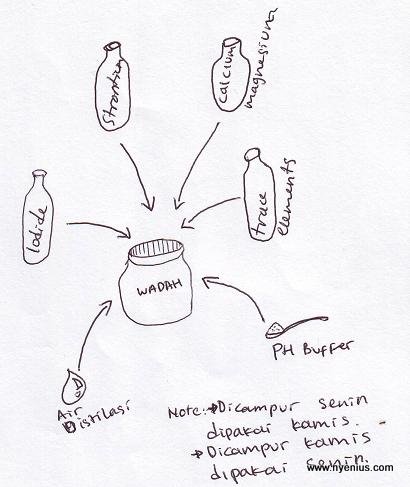 Strontium
Calcium
magnesium
Iodide
trace
elements
WADAH
PH Buffer
Air
Distilasi
Note: → Dicampur senin
dipakai kamis.
→ Dicampur kamis
dipakai senin.
www.nyenius.com